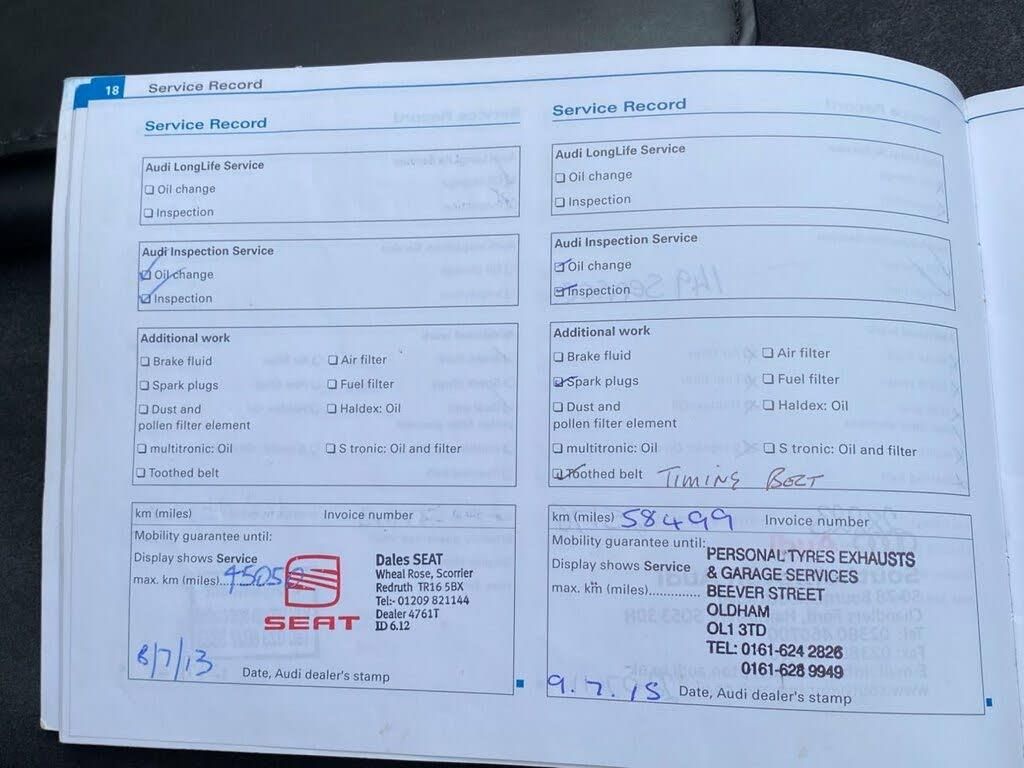 18 Service Record
Service Record
Audi LongLife Service
Oil change
Inspection
Audi Inspection Service
Oil change
Inspection
Additional work
Brake fluid
Air filter
Spark plugs
Fuel filter
Dust and
pollen filter element
Haldex: Oil
multitronic: Oil
S tronic: Oil and filter
Toothed belt
km (miles)
Invoice number
Mobility guarantee until:
Display shows Service
max. km (miles)...45050
SEAT
Dales SEAT
Wheal Rose, Scorrier
Redruth TR16 5BX
Tel:- 01209 821144
Dealer 4761T
ID 6.12
8/7/13
Date, Audi dealer's stamp
Service Record
Audi LongLife Service
Oil change
Inspection
Audi Inspection Service
Oil change
Inspection
Additional work
Brake fluid
Air filter
Spark plugs
Fuel filter
Dust and
pollen filter element
Haldex: Oil
multitronic: Oil
S tronic: Oil and filter
Toothed belt TIMING BELT
km (miles) 58499 Invoice number
Mobility guarantee until:
Display shows Service
max. km (miles)..............
PERSONAL TYRES EXHAUSTS
& GARAGE SERVICES
BEEVER STREET
OLDHAM
OL1 3TD
TEL: 0161-624 2826
0161-628 9949
9.7.15 Date, Audi dealer's stamp